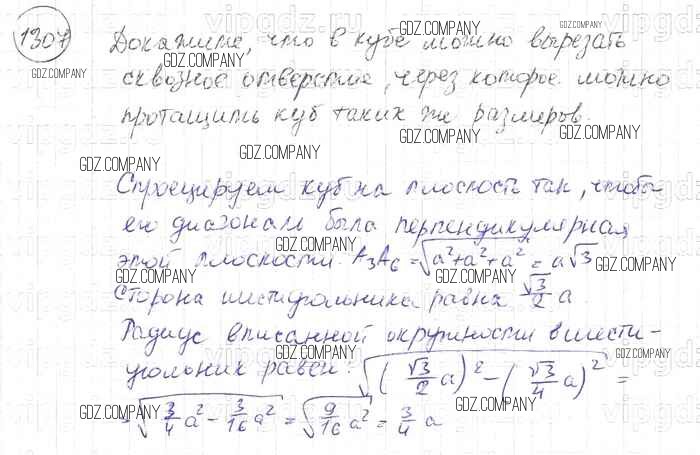 1307 Докажите, что в кубе можно вырезать
сквозное отверстие, через которое можно
протащить куб таких же размеров.
Спроецируем куб на плоскость так, чтобы
его диагональ была перпендикулярная
этой плоскости. A₃A₆ = √(a² + a² + a²) = a√3
Сторона шестиугольника равна √3/2 a.
Радиус вписанной окружности в шести-
угольник равен: √((√3/2 a)² - (√3/4 a)²) =
= √(3/4 a² - 3/16 a²) = √(9/16 a²) = 3/4 a
GDZ.COMPANY
vipgdz.ru